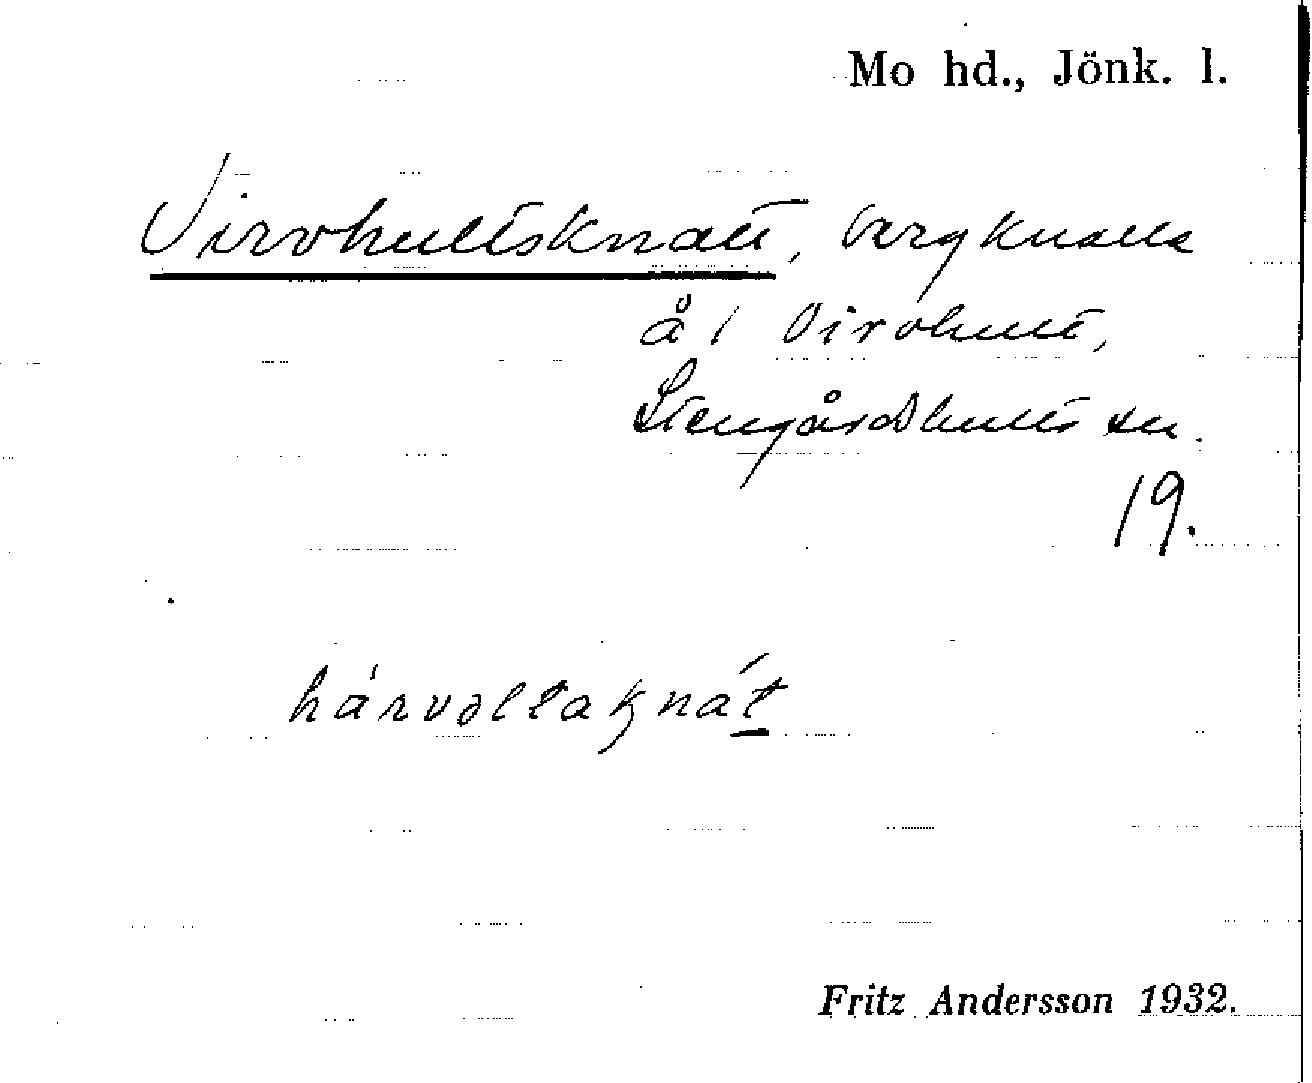 Mo hd., Jönk. l.
Virvhultsknatt, bergknalle
å / Virvhult,
Stengårdshults sn.
19.
hárvəltaknát
Fritz Andersson 1932.